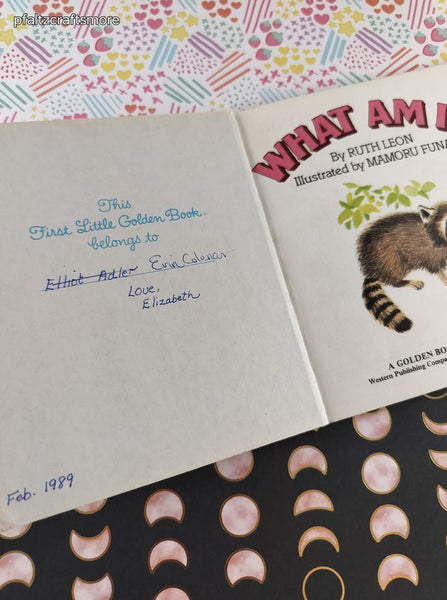 pfaltzcraftsmore
This
First Little Golden Book
belongs to
Elliot Adler Erin Coleman
Love,
Elizabeth
Feb. 1989
WHAT AM I
By RUTH LEON
Illustrated by MAMORU
A GOLDEN
Western Publishing